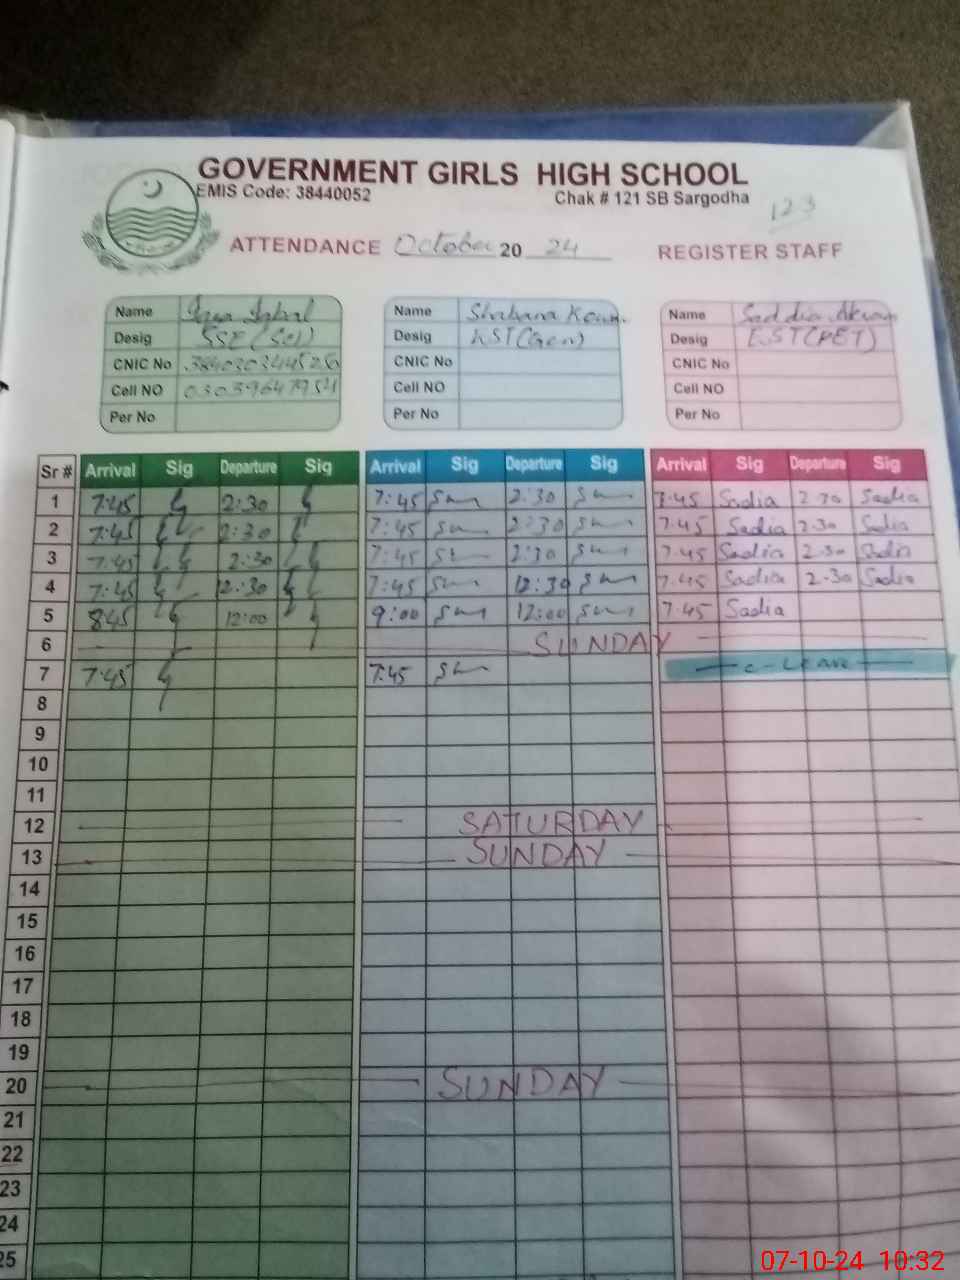 GOVERNMENT GIRLS HIGH SCHOOL
EMIS Code: 38440052 Chak # 121 SB Sargodha
123
ATTENDANCE October 20 24 REGISTER STAFF
Name Iqbal Name Shabana Name Saddia Akram
Desig SSE (Sci) Desig EST (Gen) Desig EST (PET)
CNIC No CNIC No CNIC No
Cell NO Cell NO Cell NO
Per No Per No Per No
Sr # Arrival Sig Departure Sig Arrival Sig Departure Sig Arrival Sig Departure Sig
1 7:45 2:30 7:45 2:30 7:45 Sadia 2:30 Sadia
2 7:45 2:30 7:45 2:30 7:45 Sadia 2:30 Sadia
3 7:45 2:30 7:45 2:30 7:45 Sadia 2:30 Sadia
4 7:45 12:30 7:45 12:30 7:45 Sadia 2:30 Sadia
5 8:45 12:00 9:00 12:00 7:45 Sadia
6 SUNDAY
7 7:45 7:45 C-Leave
8
9
10
11
12 SATURDAY
13 SUNDAY
14
15
16
17
18
19
20 SUNDAY
21
22
23
24
25
07-10-24 10:32